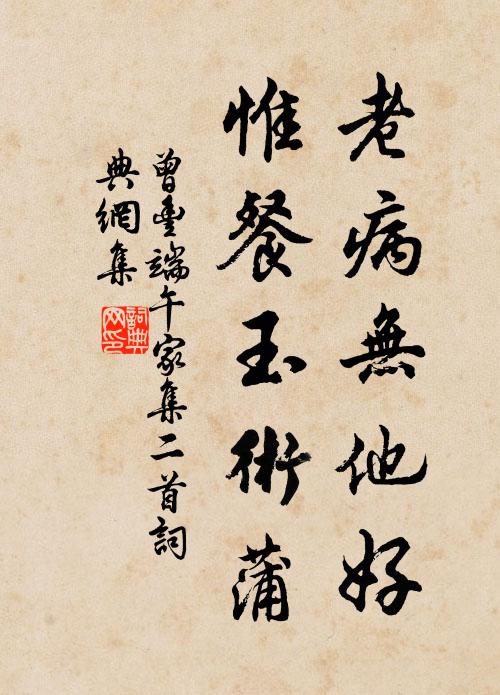 老病無他好
惟餐玉術蒲
曾豐端午家集二首詞
典網集
詞典網印